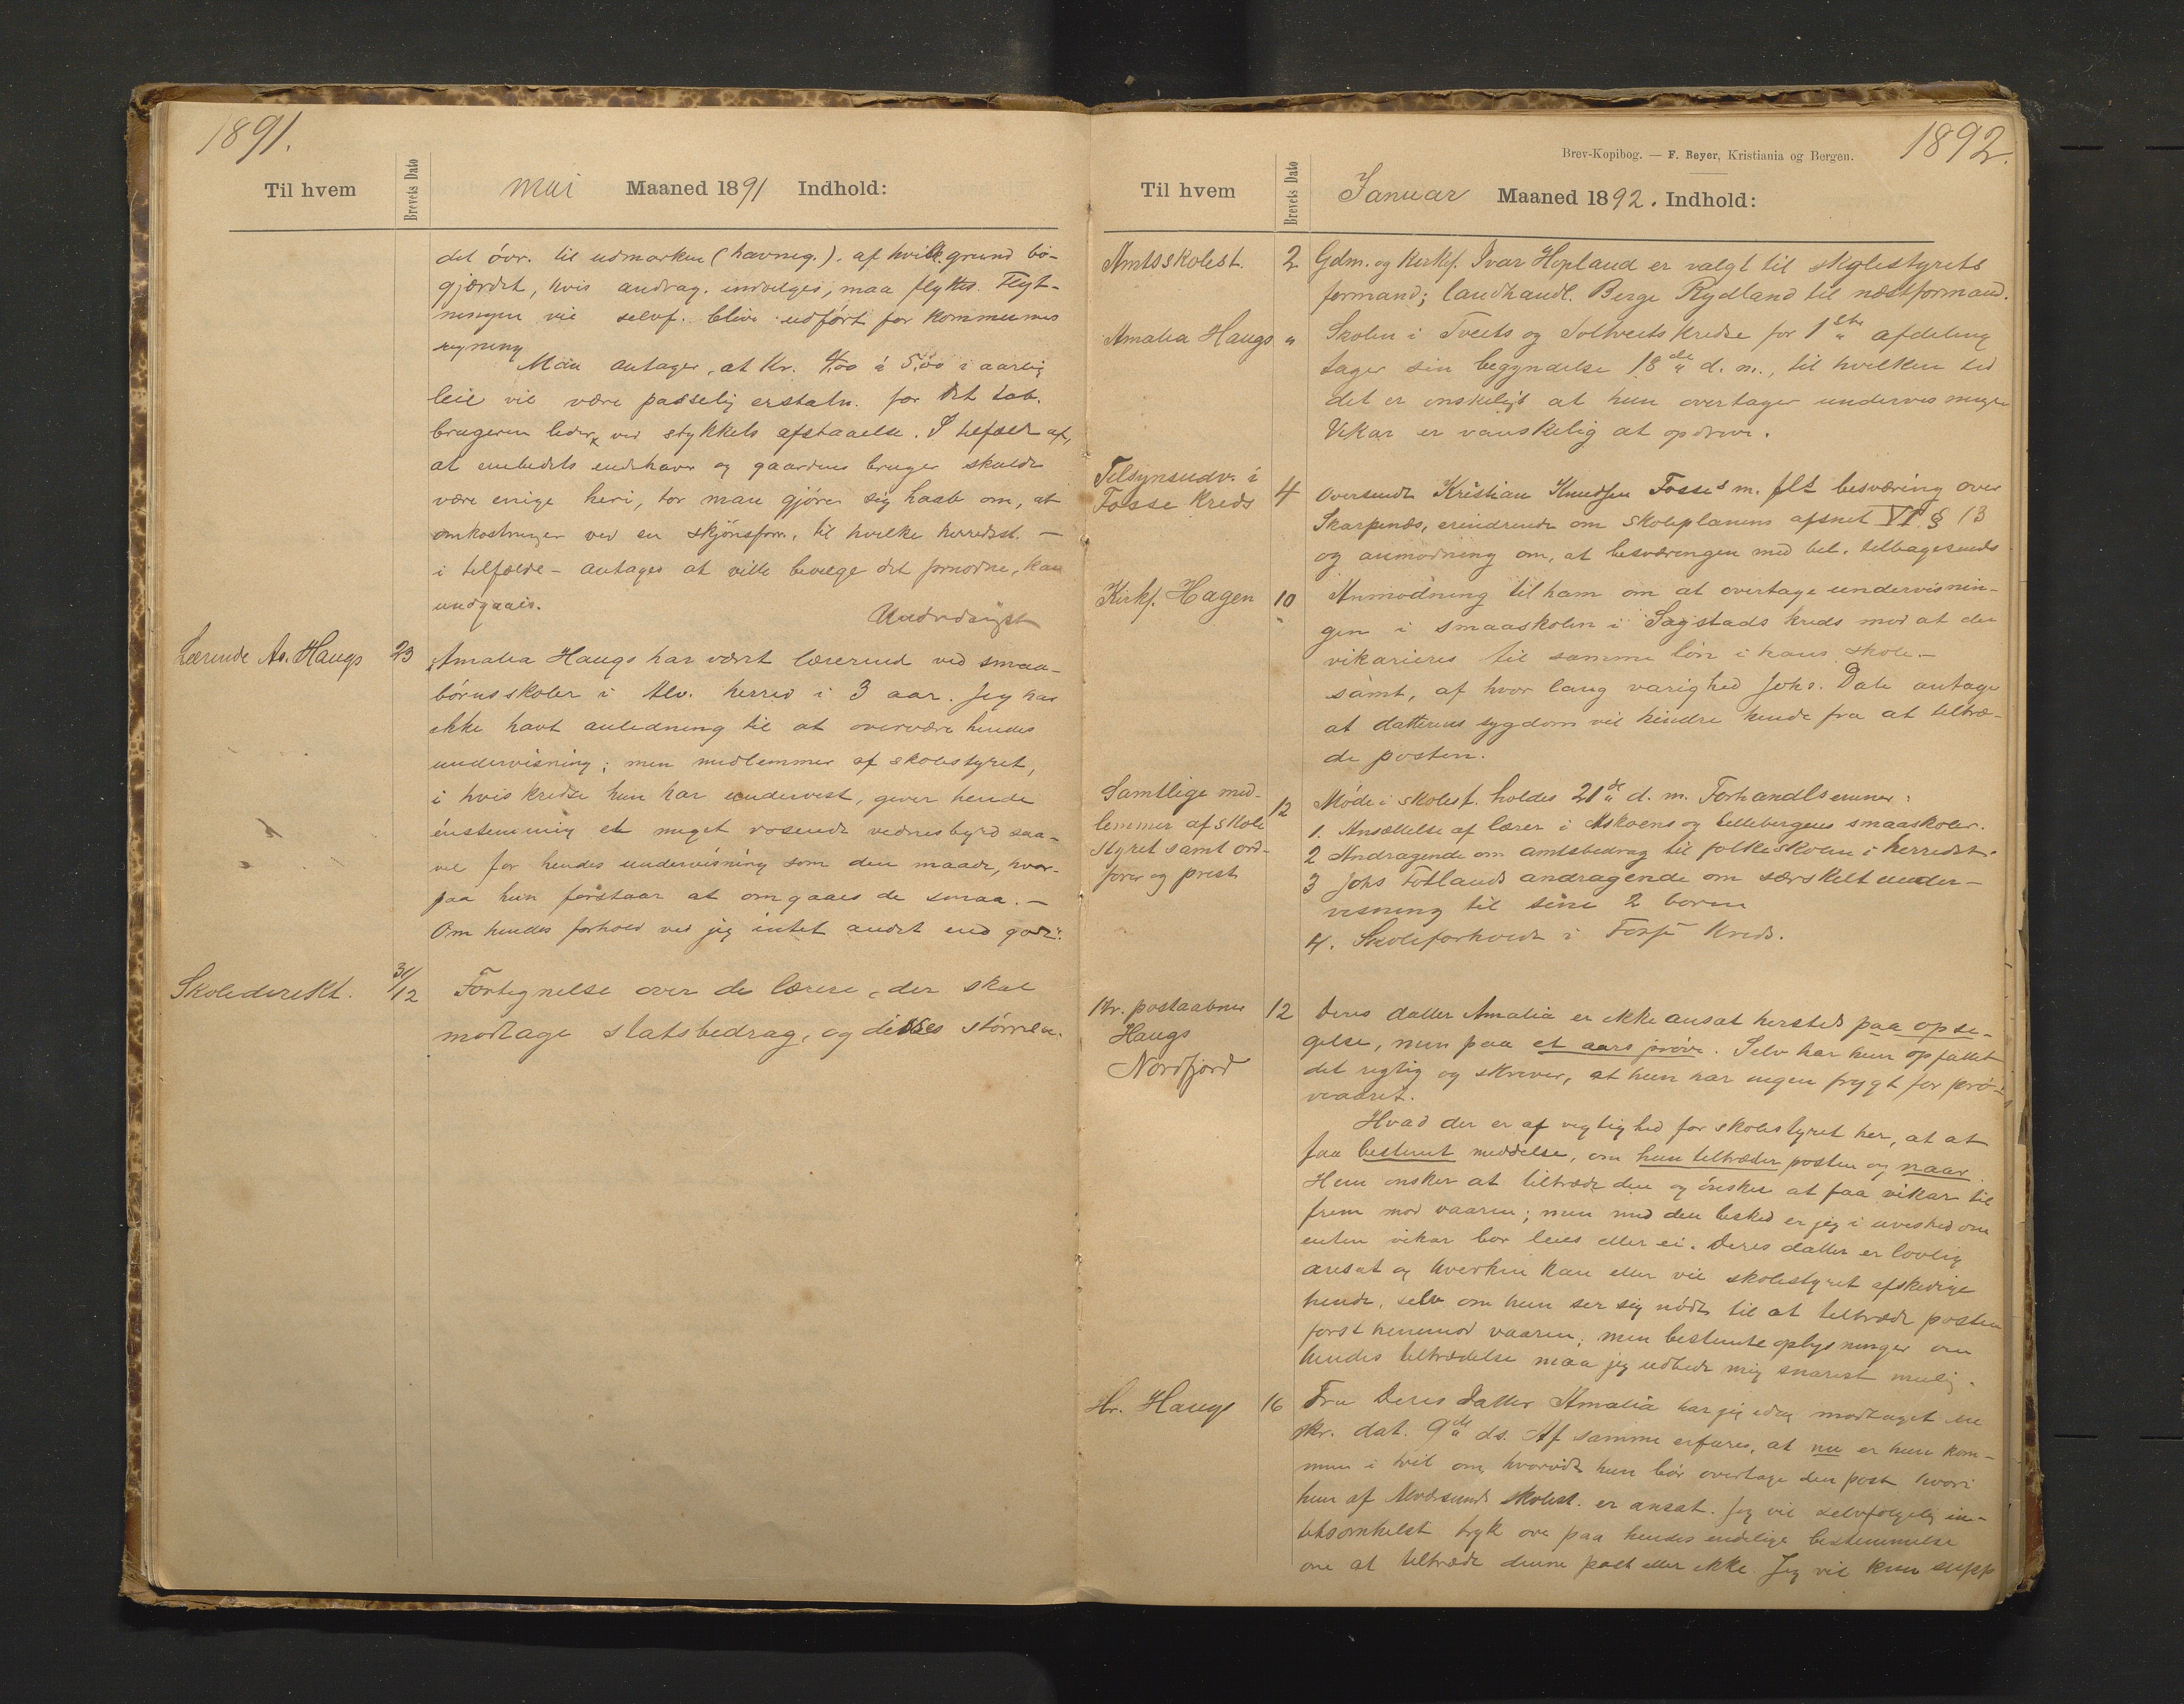 1891.
Til hvem
Brevets Dato
mai Maaned 1891 Indhold:
det övr. til udmarken (havneg.). af hvilk. grund bö-
gjærdet, hvis andrag. indvilges, maa flyttes. Flyt-
ningen vil selvf. blive udført for kommunens
regning
Man antager, at Kr. 4,00 à 5,00 i aarlig
leie vil være passelig erstatn. for det tab.
brugeren lider ved stykkets afstaaelse. I tilfælde af,
at embedets indehaver og gaardens bruger skulde
være enige heri, tör man gjöre sig haab om, at
omkostninger ved en skjönsforr. til hvilke herredsst. —
i tilfælde – antages at ville bevilge det fornödne, kan
undgaaes.
Underdanigst
Lærerinde As. Haugs 23 Amalia Haugs har været lærerind ved smaa-
börnsskoler i Alv. herred i 3 aar. Jeg har
ikke havt anledning til at overvære hendes
undervisning; men medlemmer af skolestyret,
i hvis kredse hun har undervist, giver hende
énstemmig et meget rosende vidnesbyrd saa-
vel for hendes undervisning som den maade, hvor-
paa hun forstaar at omgaaes de smaa. —
Om hendes forhold ved jeg intet andet end godt.
Skoledirekt. 31/12 Fortegnelse over de lærere, der skal
modtage statsbedrag, og disses större.
1892.
Brev-Kopibog. — F. Beyer, Kristiania og Bergen.
Til hvem
Brevets Dato
Januar Maaned 1892. Indhold:
Amtsskolest. 2 Gdm. og kirkes. Ivar Hopland er valgt til skolestyrets
formand; landhandl. Berge Rydland til næstformand.
Amalia Haugs " Skolen i Tveits og Soltveits kredse for 1ste afdeling
tager sin begyndelse 18de d. m., til hvilken tid
det er önskeligt at hun overtager undervisningen
Vikar er vanskelig at opdrive.
Tilsynsudv. i
Fosse kreds 4 Oversendt Kristian Knudsen Fosses m. flt besværing over
Skarpenæs, erindrende om skoleplanens afsnit VI § 13
og anmodning om, at besværingen med bet. tilbagesends
Kirkes. Hagen 10 Anmodning til ham om at overtage undervisnin-
gen i smaaskolen i Sagstads kreds mod at der
vikarieres til samme lön i hans skole. —
samt, af hvor lang varighed Johs. Dale antager
at datterens sygdom vil hindre hende fra at tiltræ-
de posten.
Samtlige med-
lemmer af skole
styret samt ord-
förer og prest
12 Möde i skolest. holdes 21de d. m. Forhandlsemner:
1. Ansættelse af lærer i Askoens og Lillebergens smaaskoler.
2 Andragende om amtsbedrag til folkeskolen i herredet.
3 Johs Fotlands andragende om særskilt under-
visning til sine 2 börn
4. Skoleforholde i Fosse Kreds.
Hr. postaabner
Haugs
Nordfjord
12 Deres datter Amalia er ikke ansat hersteds paa opsi-
gelse, men paa et aars pröve. Selv har hun opfattet
det rigtig og skriver, at hun har ingen frygt for prö-
veaaret.
Hvad der er af vigtighed for skolestyret her, at at
faa bestemt meddelse, om hun tiltræder posten og naar.
Hun önsker at tiltræde den og önsker at faa vikar til
frem mod vaaren; men med den besked er jeg i uvished om
enten vikar bör leies eller ei. Deres datter er lovlig
ansat og hverken kan eller vil skolestyret afskedige
hende, selv om hun ser sig nödt til at tiltræde posten
först henimod vaaren; men bestemte oplysninger om
hendes tiltrædelse maa jeg udbede mig snarest mulig.
Hr. Haugs 16 Fra Deres datter Amalia har jeg idag modtaget en
skr. dat. 9de ds. Af samme erfares, at nu er hun kom-
men i tvil om, hvorvidt hun bör overtage den post hvori
hun af Alversunds skolest. er ansat. Jeg vil selvfölgelig in-
tetsomhelst tryk öve paa hendes endelige bestemmelse
om at tiltræde denne post eller ikke Jeg vil kun supp